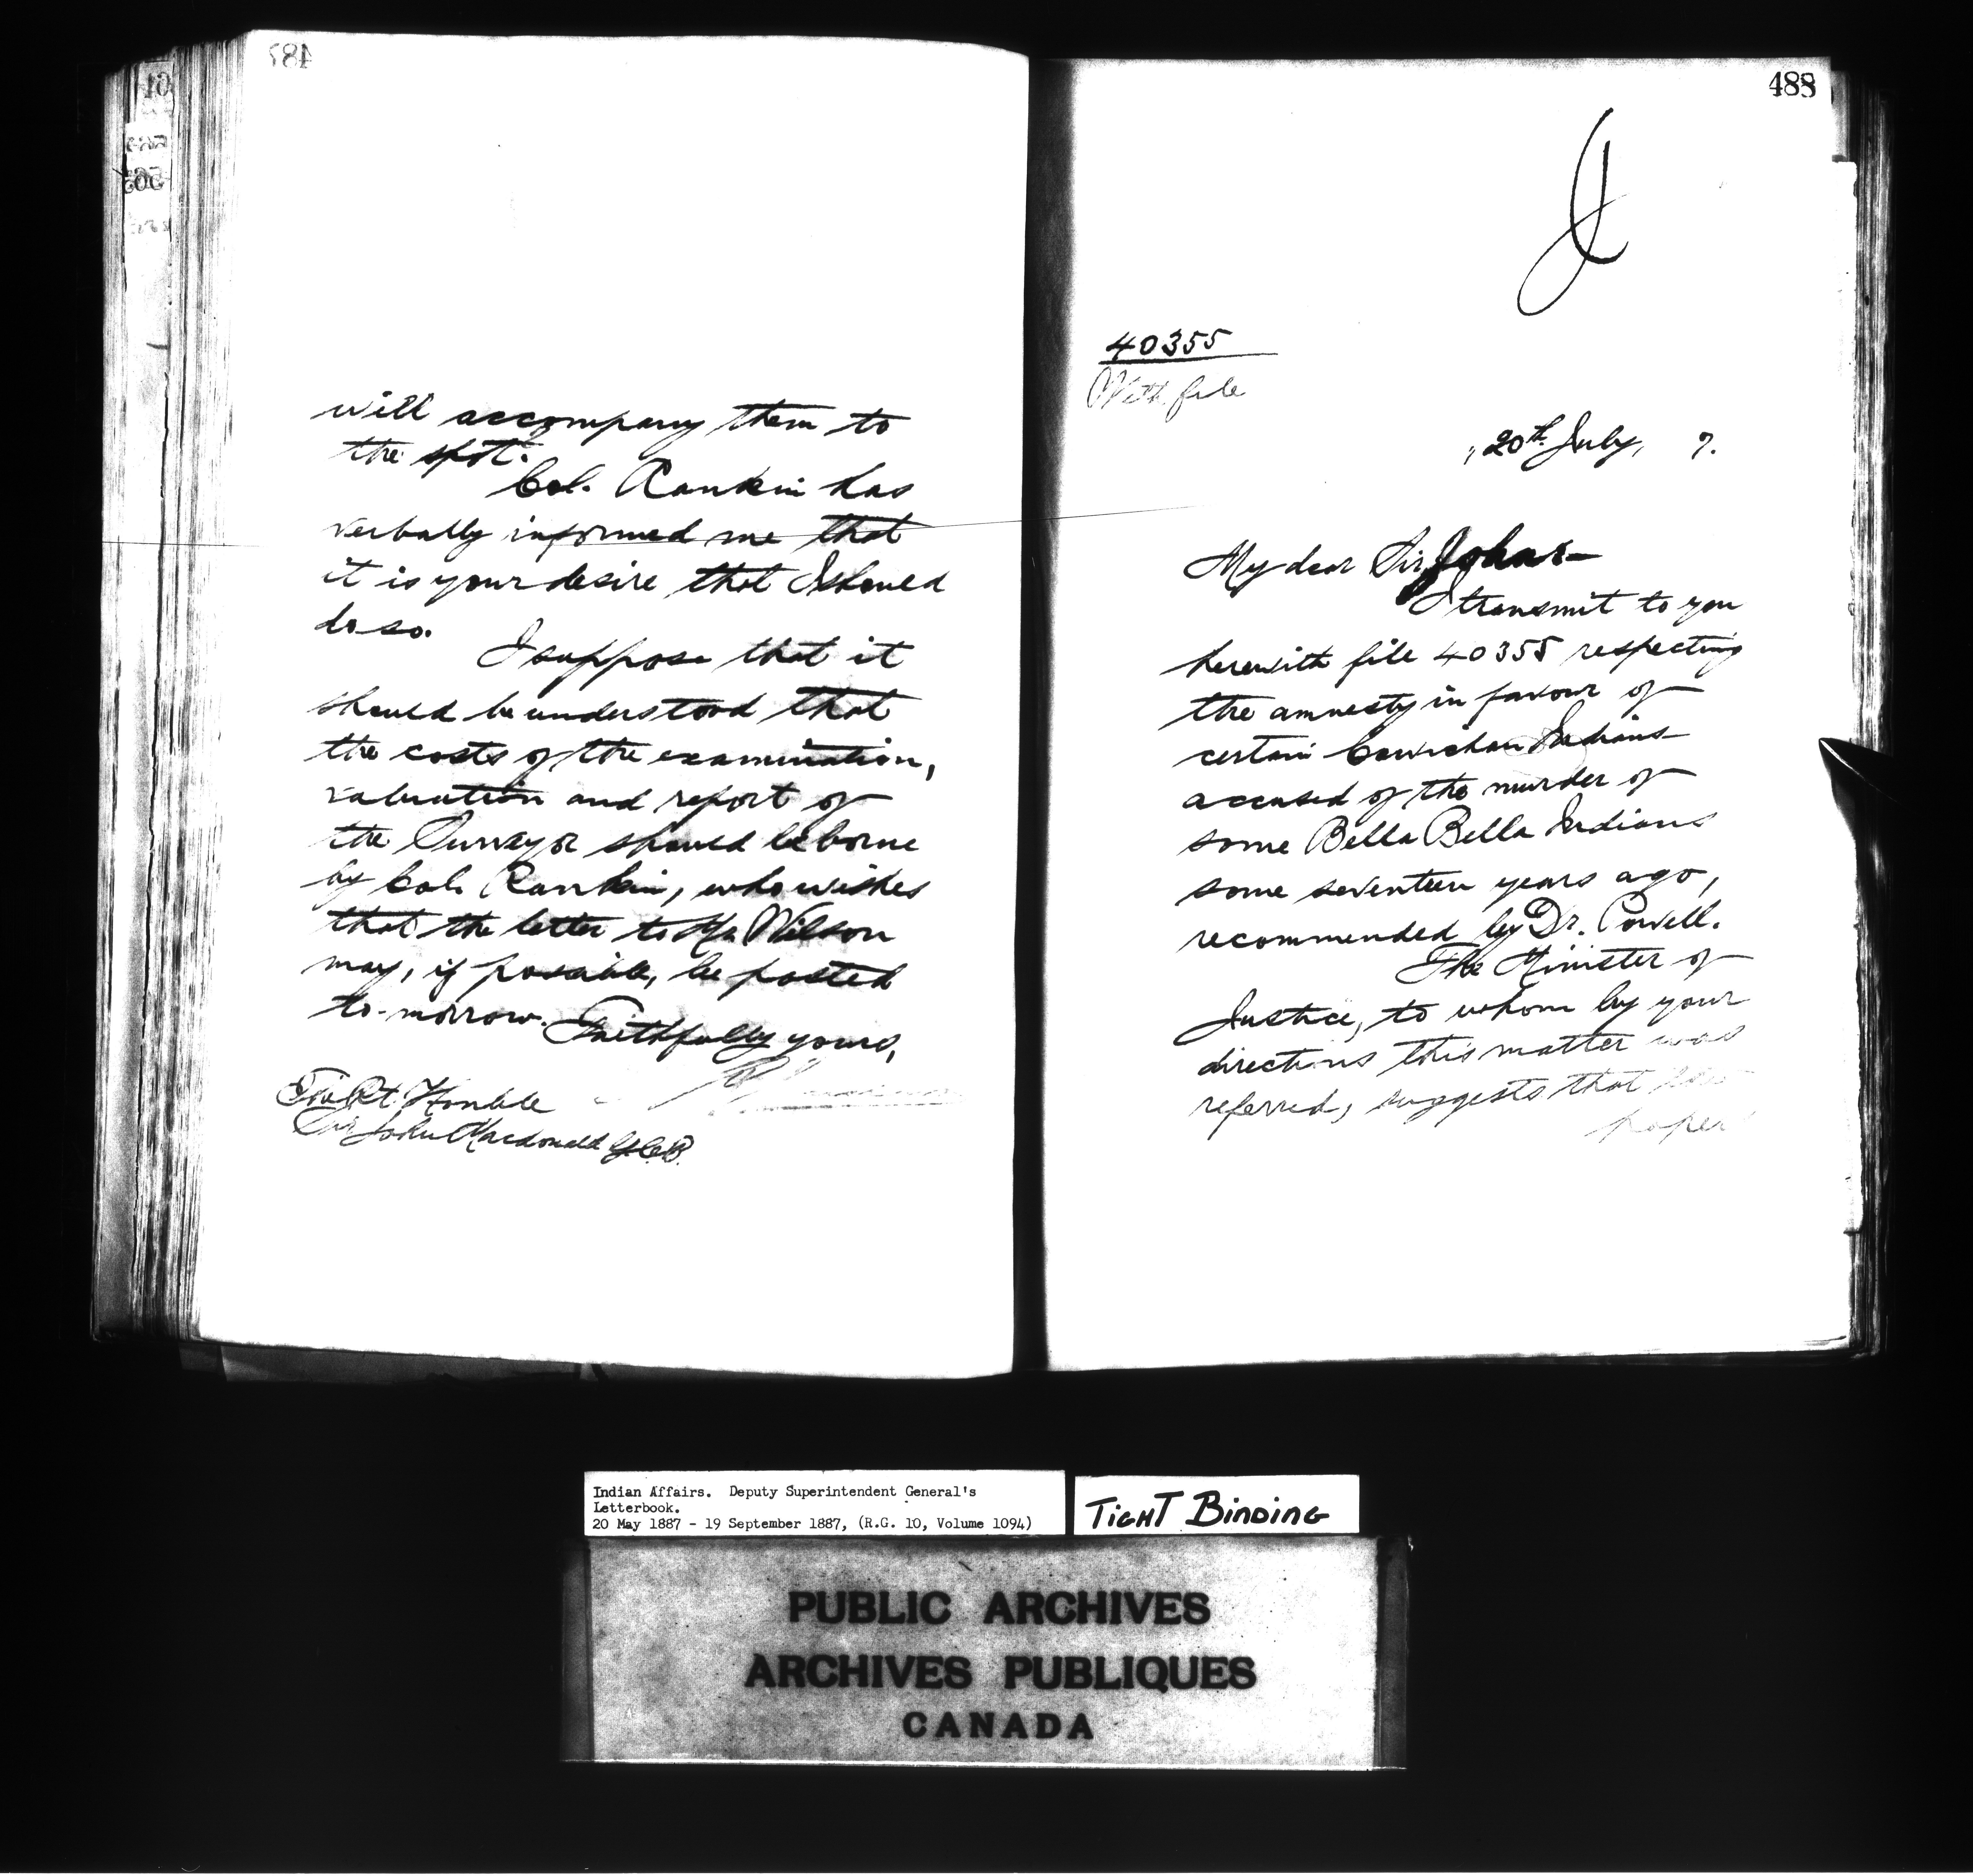 487
will accompany them to
the spot.
Col. Rankin has
verbally informed me that
it is your desire that I should
do so.
I suppose that it
should be understood that
the costs of the examination,
valuation and report of
the Surveyor should be borne
by Col. Rankin, who wishes
that the letter to Mr. Wilson
may, if possible, be posted
to-morrow. Faithfully yours,
The Rt. Honble
Sir John Macdonald G.C.B.
488
40355
With file
20th July, 7.
My dear Sir John
I transmit to you
herewith file 40355 respecting
the amnesty in favour of
certain Cowichan Indians
accused of the murder of
some Bella Bella Indians
some seventeen years ago,
recommended by Dr. Powell.
The Minister of
Justice, to whom by your
directions this matter was
referred, suggests that
paper
Indian Affairs. Deputy Superintendent General's
Letterbook.
20 May 1887 - 19 September 1887, (R.G. 10, Volume 1094)
TIGHT BINDING
PUBLIC ARCHIVES
ARCHIVES PUBLIQUES
CANADA